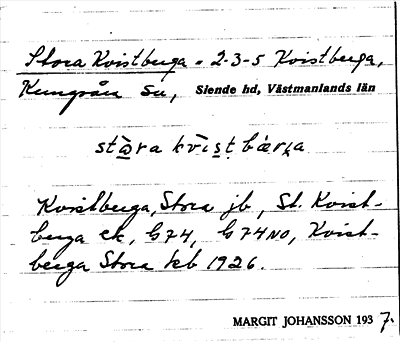 Stora Kvistberga - 2-3-5 Kvistberga,
Kungsåra sn, Siende hd, Västmanlands län
stɷ̀ra kvìst bær̨a
Kvistberga, Stora jb, St. Kvist-
berga ek, G74, G74NO, Kvist-
berga Stora kb 1926.
MARGIT JOHANSSON 1937.